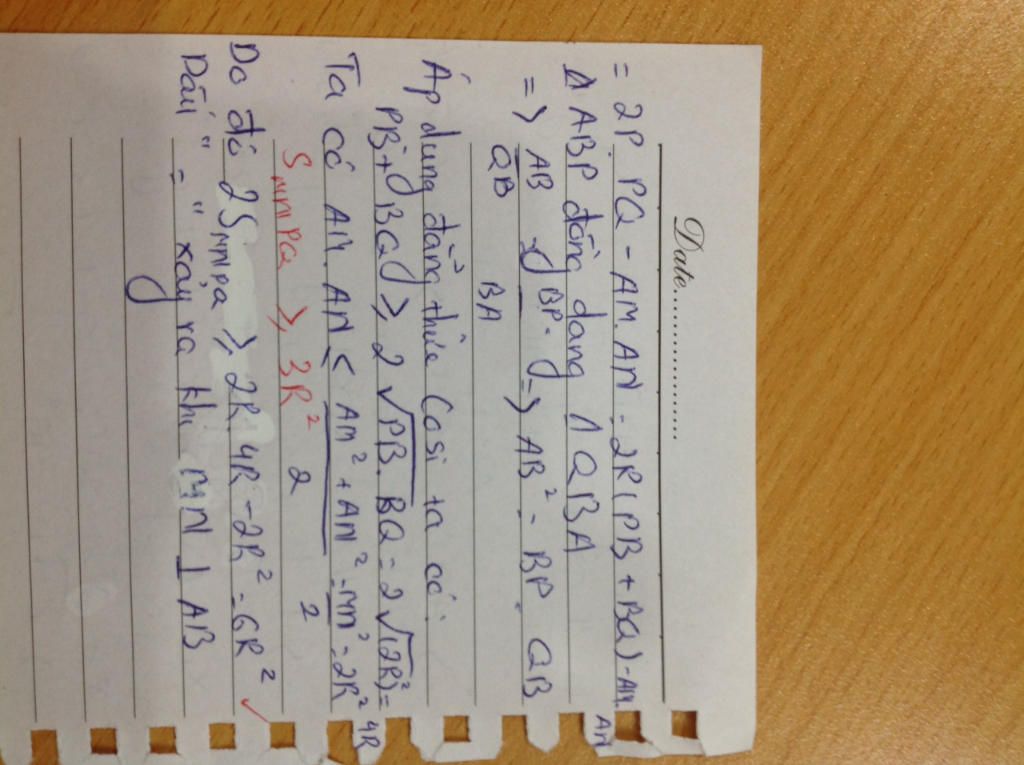 Date...................
= 2R. PQ - AM. AN = 2R(PB + BQ) - AM. AN
Δ ABP đồng dạng Δ QBA
=> AB/QB = BP/BA => AB² = BP. QB
Áp dụng đẳng thức Cosi ta có:
PB + BQ ≥ 2√PB. BQ = 2√(2R)² = 4R
Ta có AM. AN ≤ AM² + AN²/2 = MN²/2 = 2R²
S MNPQ ≥ 3R²
Do đó 2S MNPQ ≥ 2R. 4R - 2R² = 6R² ✓
Dấu "=" xảy ra khi MN ⊥ AB